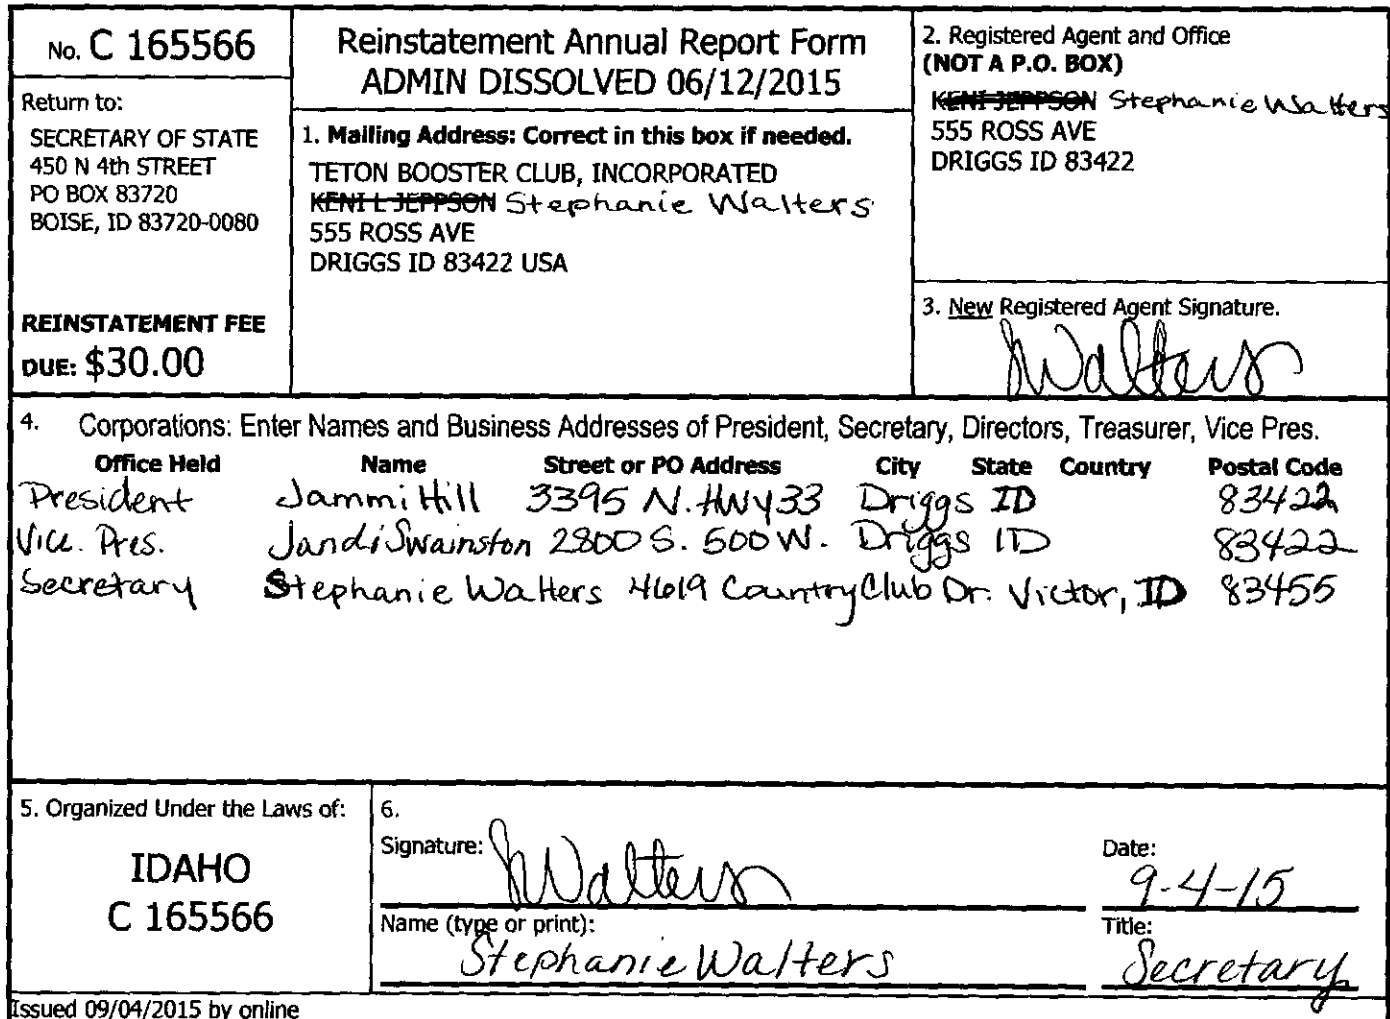 No. C 165566
Return to:
SECRETARY OF STATE
450 N 4th STREET
PO BOX 83720
BOISE, ID 83720-0080
REINSTATEMENT FEE
DUE: $30.00
Reinstatement Annual Report Form
ADMIN DISSOLVED 06/12/2015
1. Mailing Address: Correct in this box if needed.
TETON BOOSTER CLUB, INCORPORATED
KENI L JEPPSON Stephanie Walters
555 ROSS AVE
DRIGGS ID 83422 USA
2. Registered Agent and Office
(NOT A P.O. BOX)
KENI JEPPSON Stephanie Walters
555 ROSS AVE
DRIGGS ID 83422
3. New Registered Agent Signature.
SWalters
4. Corporations: Enter Names and Business Addresses of President, Secretary, Directors, Treasurer, Vice Pres.
Office Held Name Street or PO Address City State Country Postal Code
President Jammi Hill 3395 N. HWY 33 Driggs ID 83422
Vice. Pres. Jandi Swainston 2800 S. 500 W. Driggs ID 83422
Secretary Stephanie Walters 4619 Country Club Dr. Victor, ID 83455
5. Organized Under the Laws of:
IDAHO
C 165566
6.
Signature: SWalters
Date:
9-4-15
Name (type or print):
Stephanie Walters
Title:
Secretary
Issued 09/04/2015 by online